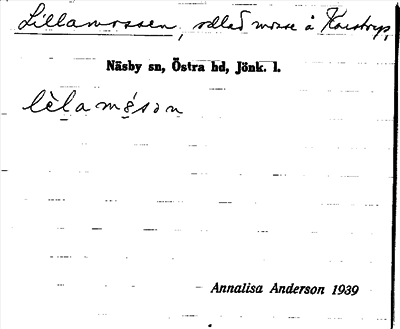 Lillamossen, odlad mosse å Karstorp,
Näsby sn, Östra hd, Jönk. l.
lèlamóson
Annalisa Anderson 1939